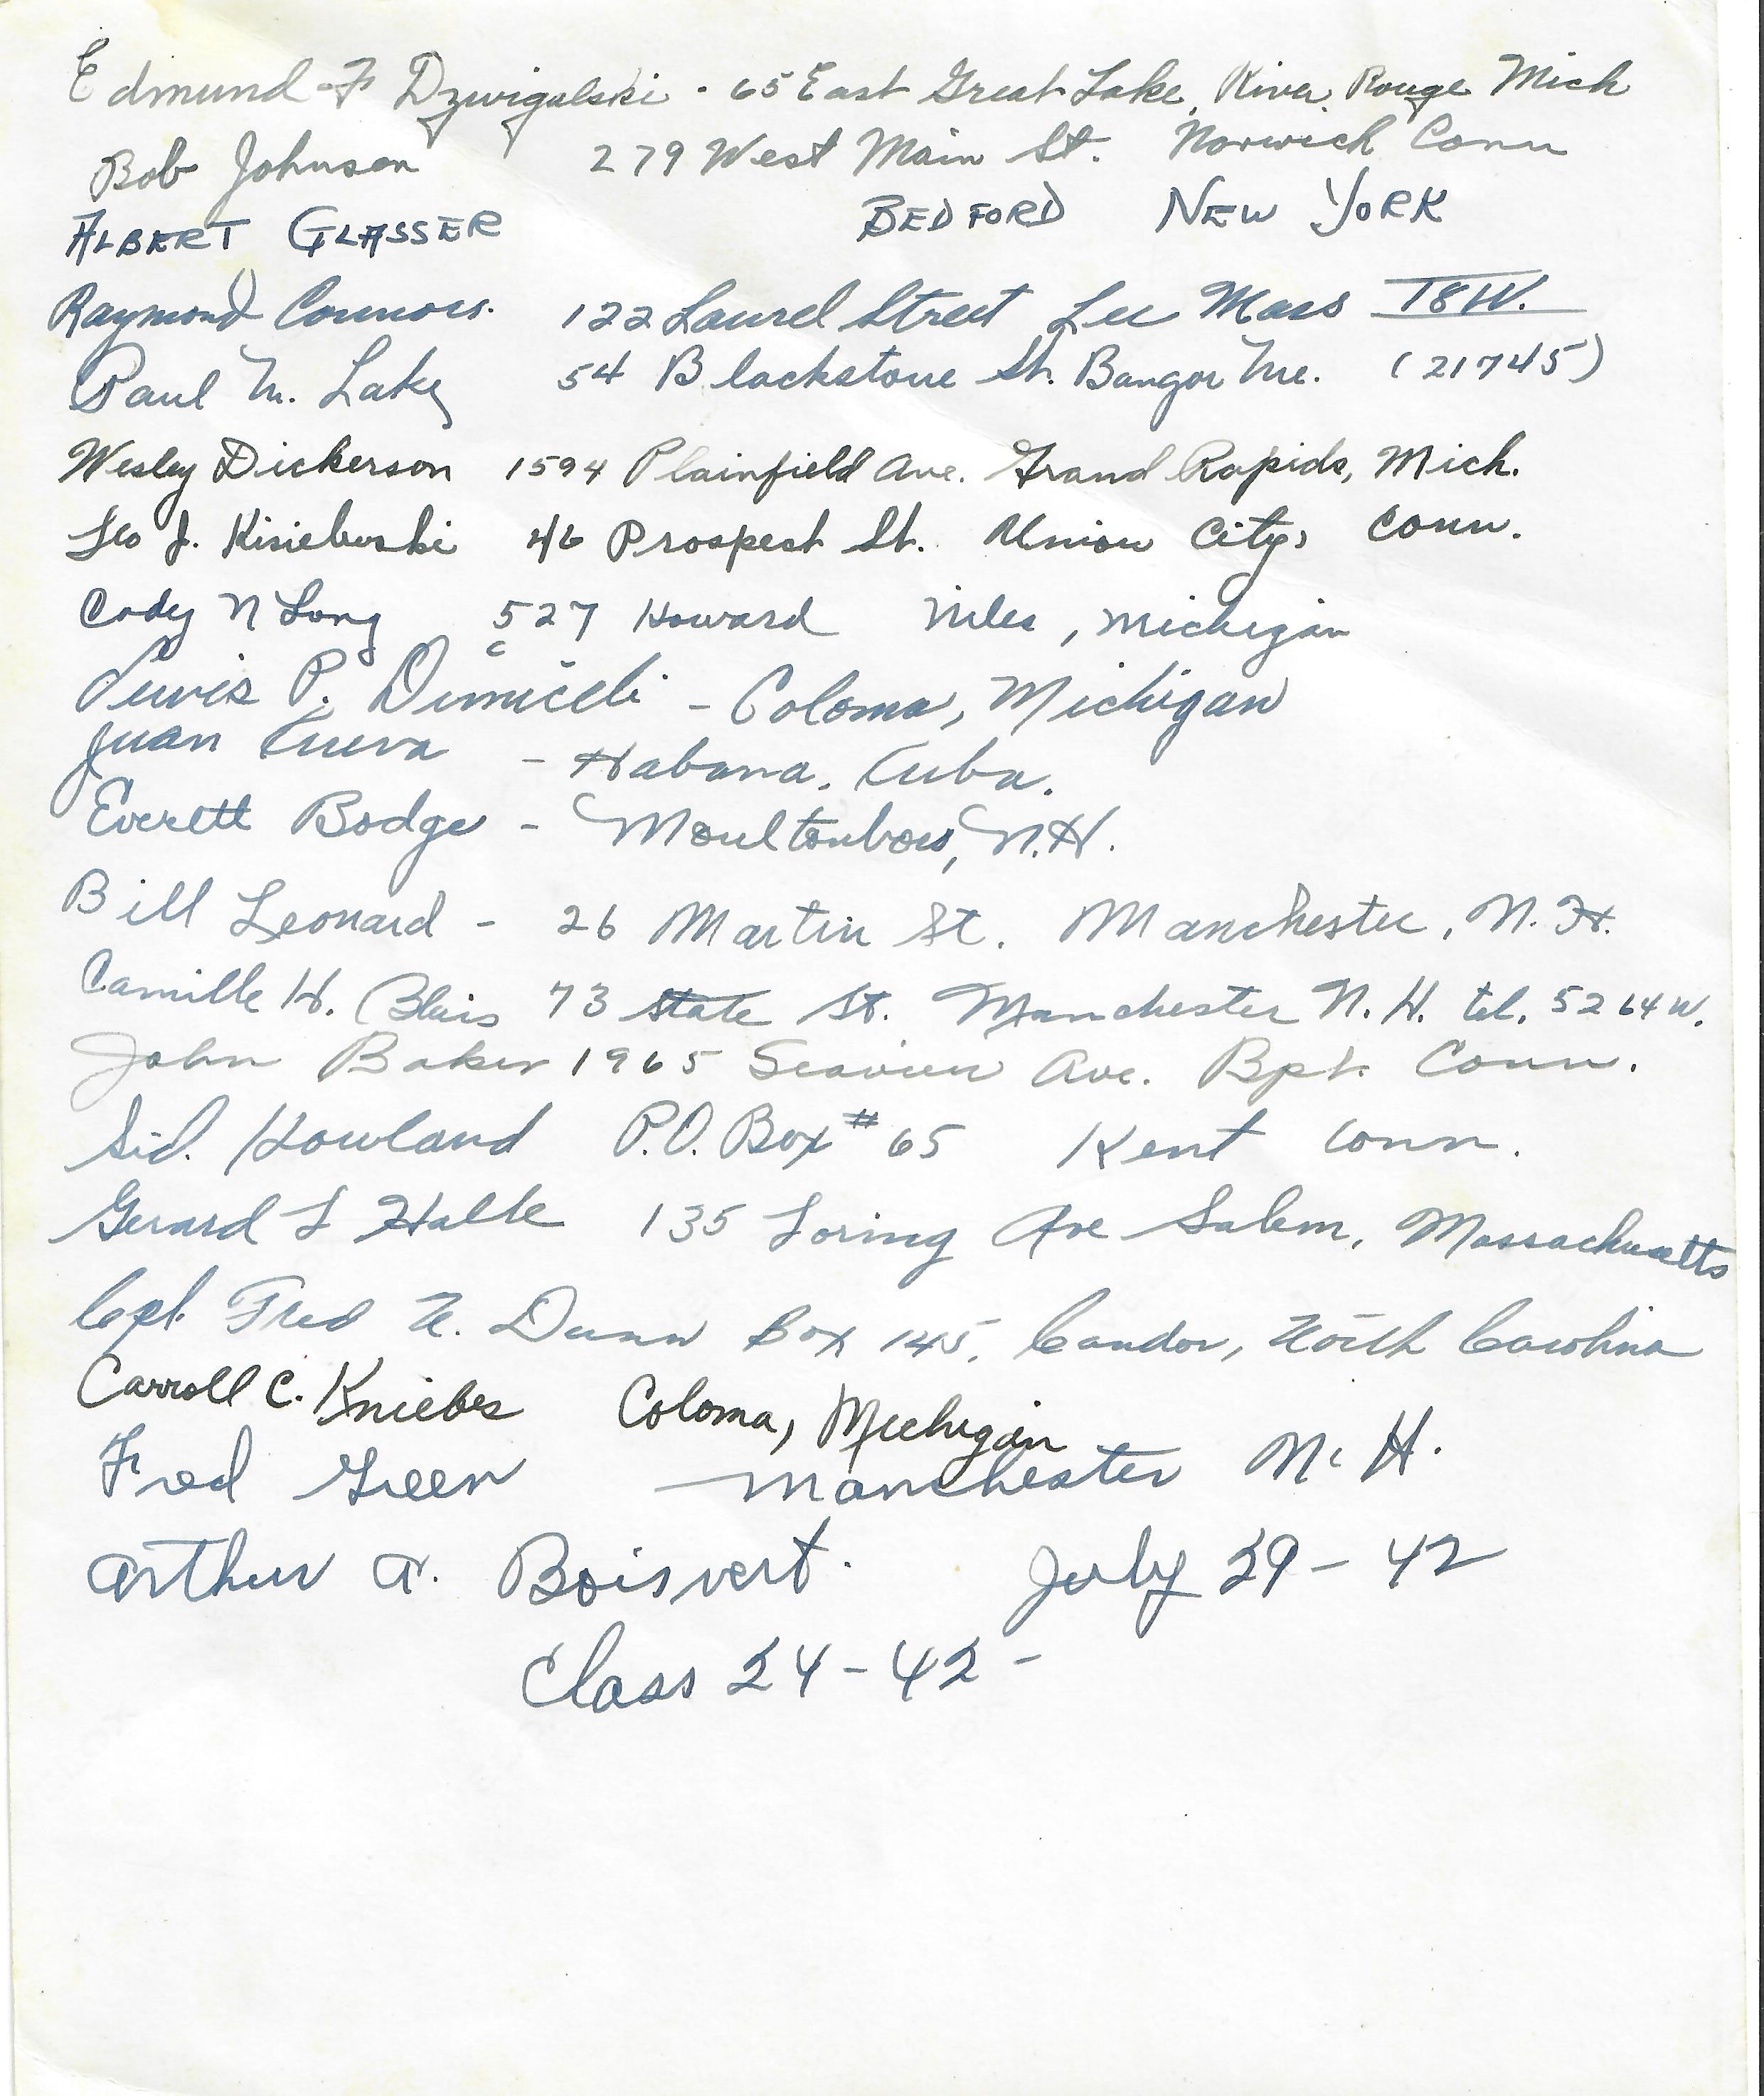 Edmund F Dzwigalski - 65 East Great Lake, River Rouge Mich
Bob Johnson 279 West Main St. Norwich Conn
ALBERT GLASSER BEDFORD NEW YORK
Raymond Connors. 122 Laurel Street Lee Mass 78W.
Paul M. Lake 54 Blackstone St. Bangor Me. (21745)
Wesley Dickerson 1594 Plainfield Ave. Grand Rapids, Mich.
Leo J. Kisielewski 46 Prospect St. Union City, Conn.
Cody N Long 527 Howard Niles, Michigan
Lewis P. Dimiceli - Coloma, Michigan
Juan Cueva - Habana, Cuba.
Everett Bodge - Moultonboro, N.H.
Bill Leonard - 26 Martin St. Manchester, N.H.
Camille H. Blais 73 State St. Manchester N.H. tel. 5264W.
John Baker 1965 Seaview Ave. Bpt. Conn.
Sid. Howland P.O. Box #65 Kent Conn.
Gerard L Halle 135 Loring Ave Salem, Massachusetts
Cpl. Fred N. Dunn Box 145, Candor, North Carolina
Carroll C. Kniebes Coloma, Michigan
Fred Green — Manchester N.H.
Arthur A. Boisvert. July 29-42
Class 24-42-